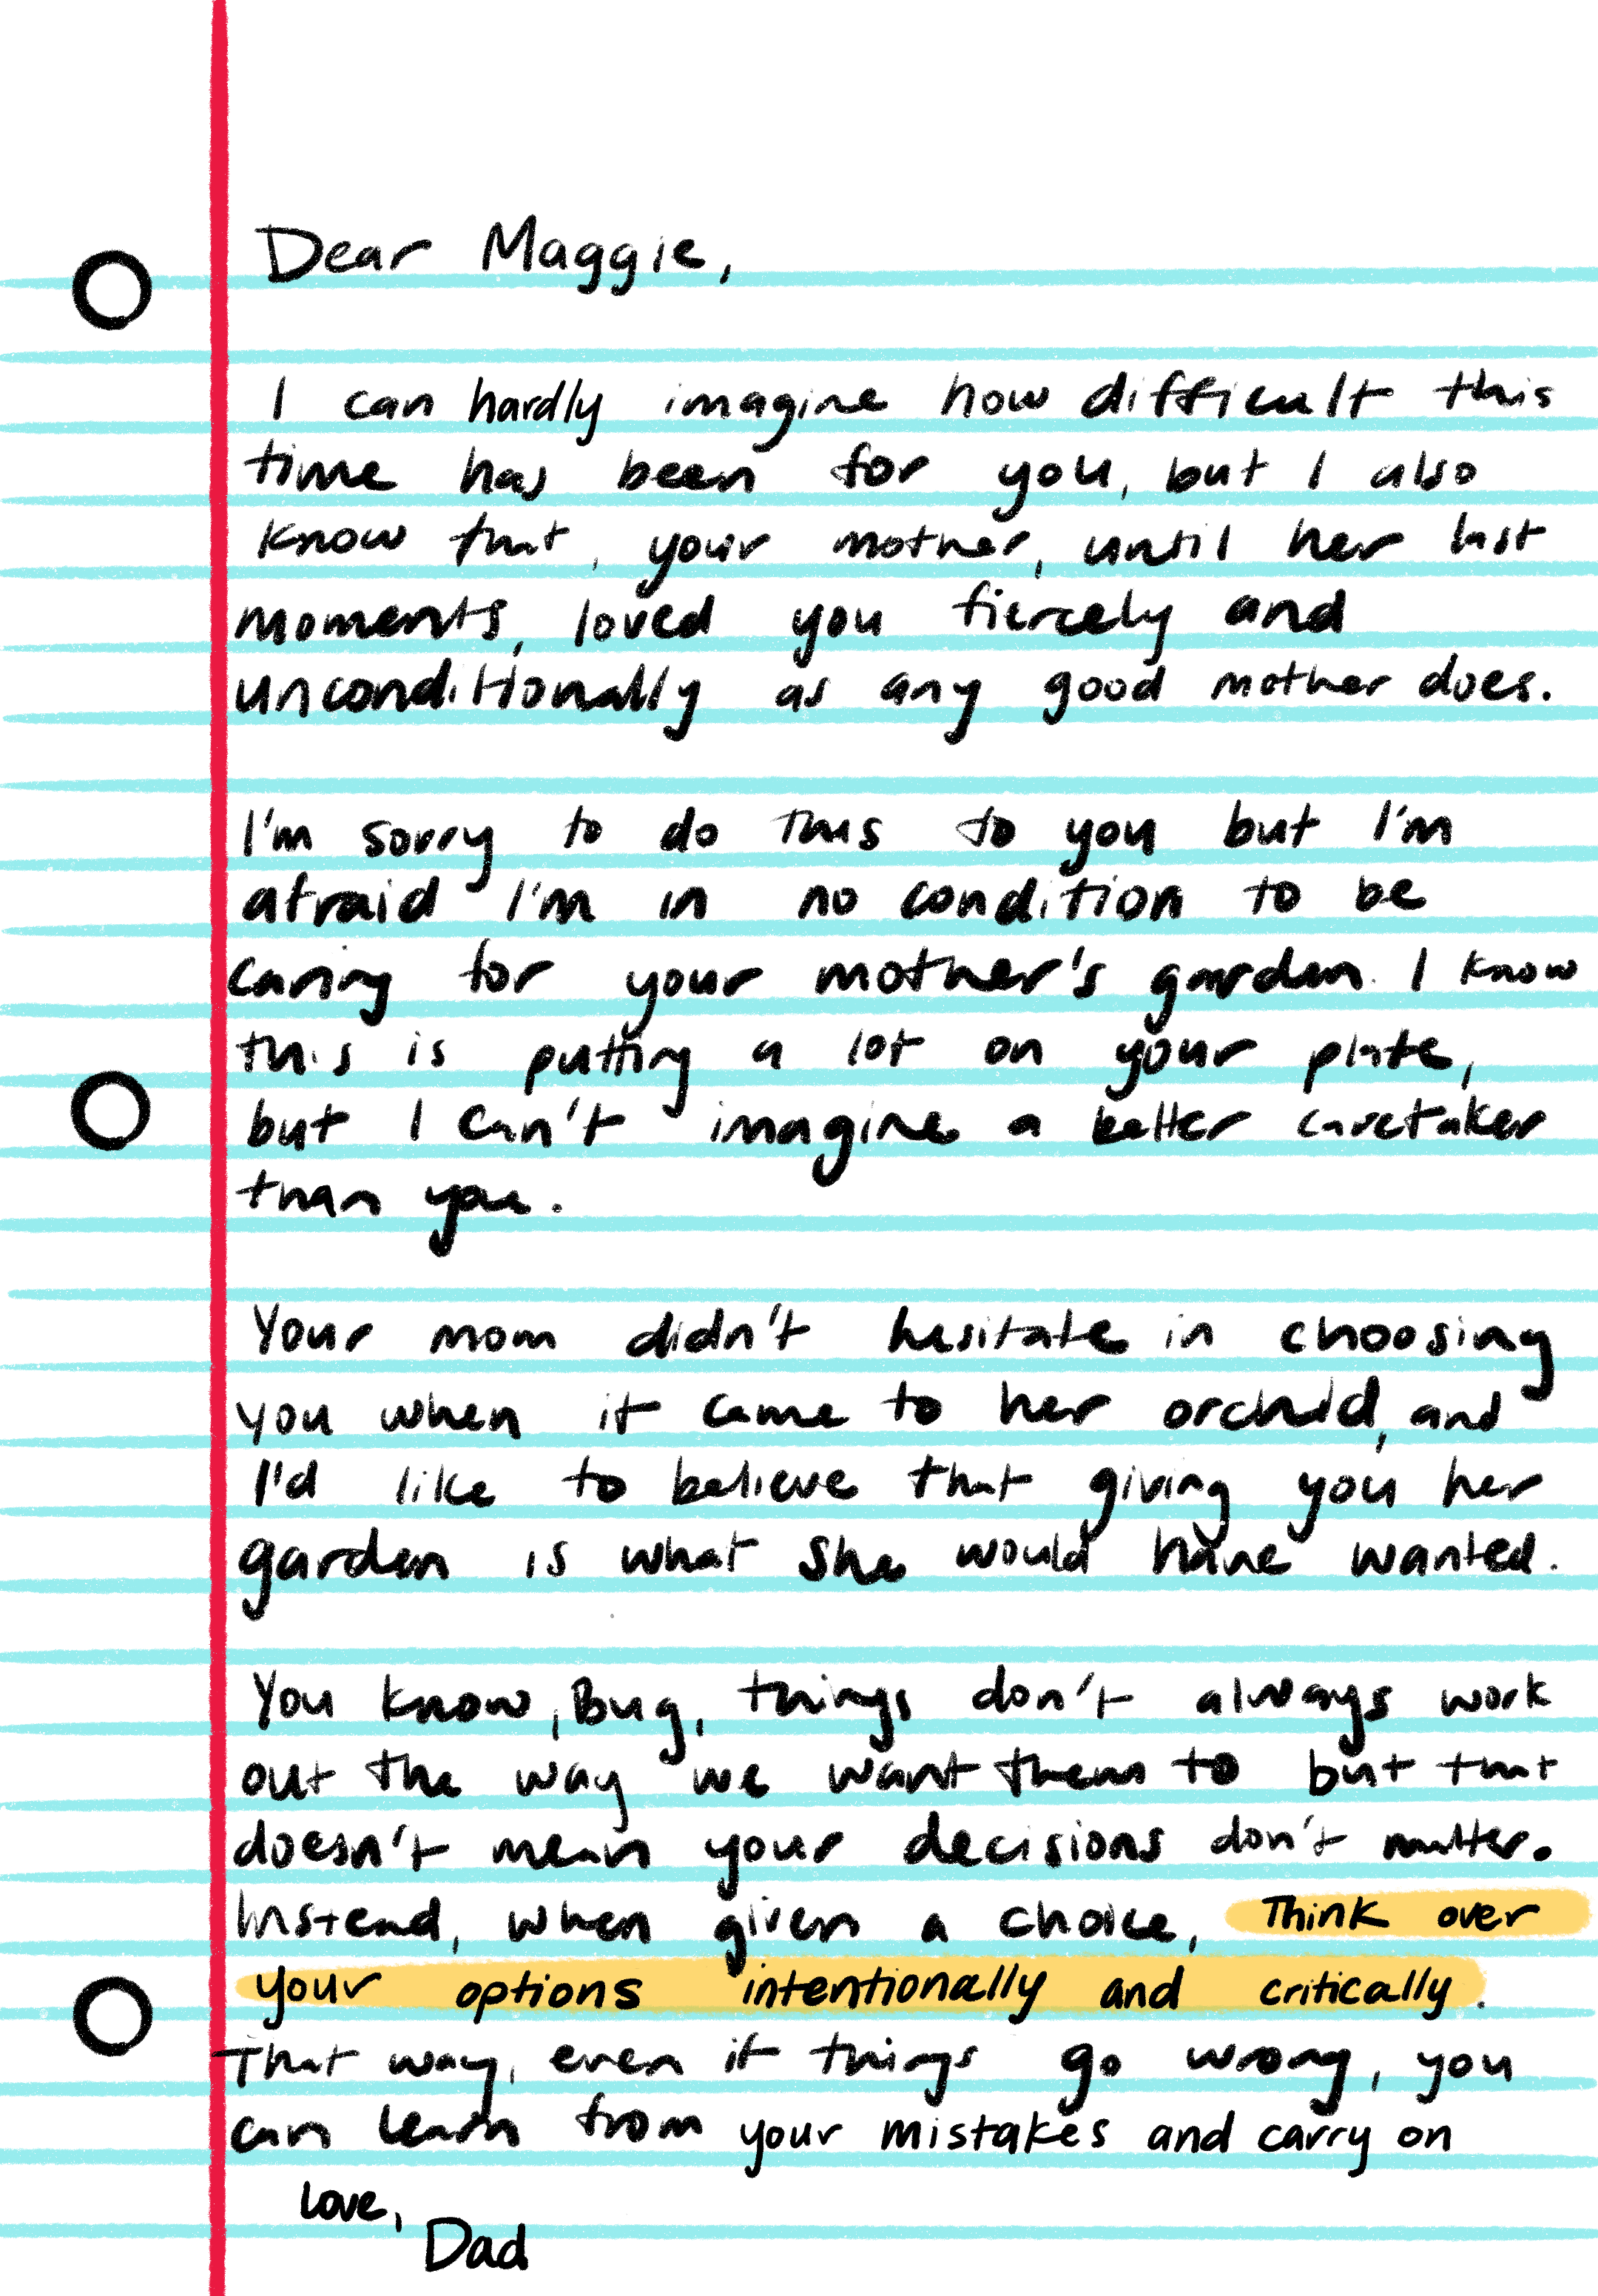 Dear Maggie,
I can hardly imagine how difficult this
time has been for you, but I also
know that, your mother, until her last
moments, loved you fiercely and
unconditionally as any good mother does.
I'm sorry to do this to you but I'm
afraid I'm in no condition to be
caring for your mother's garden. I know
this is putting a lot on your plate,
but I can't imagine a better caretaker
than you.
Your mom didn't hesitate in choosing
you when it came to her orchid, and
I'd like to believe that giving you her
garden is what she would have wanted.
You know, Bug, things don't always work
out the way we want them to but that
doesn't mean your decisions don't matter.
Instead, when given a choice, Think over
your options intentionally and critically.
That way, even if things go wrong, you
can learn from your mistakes and carry on
love,
Dad